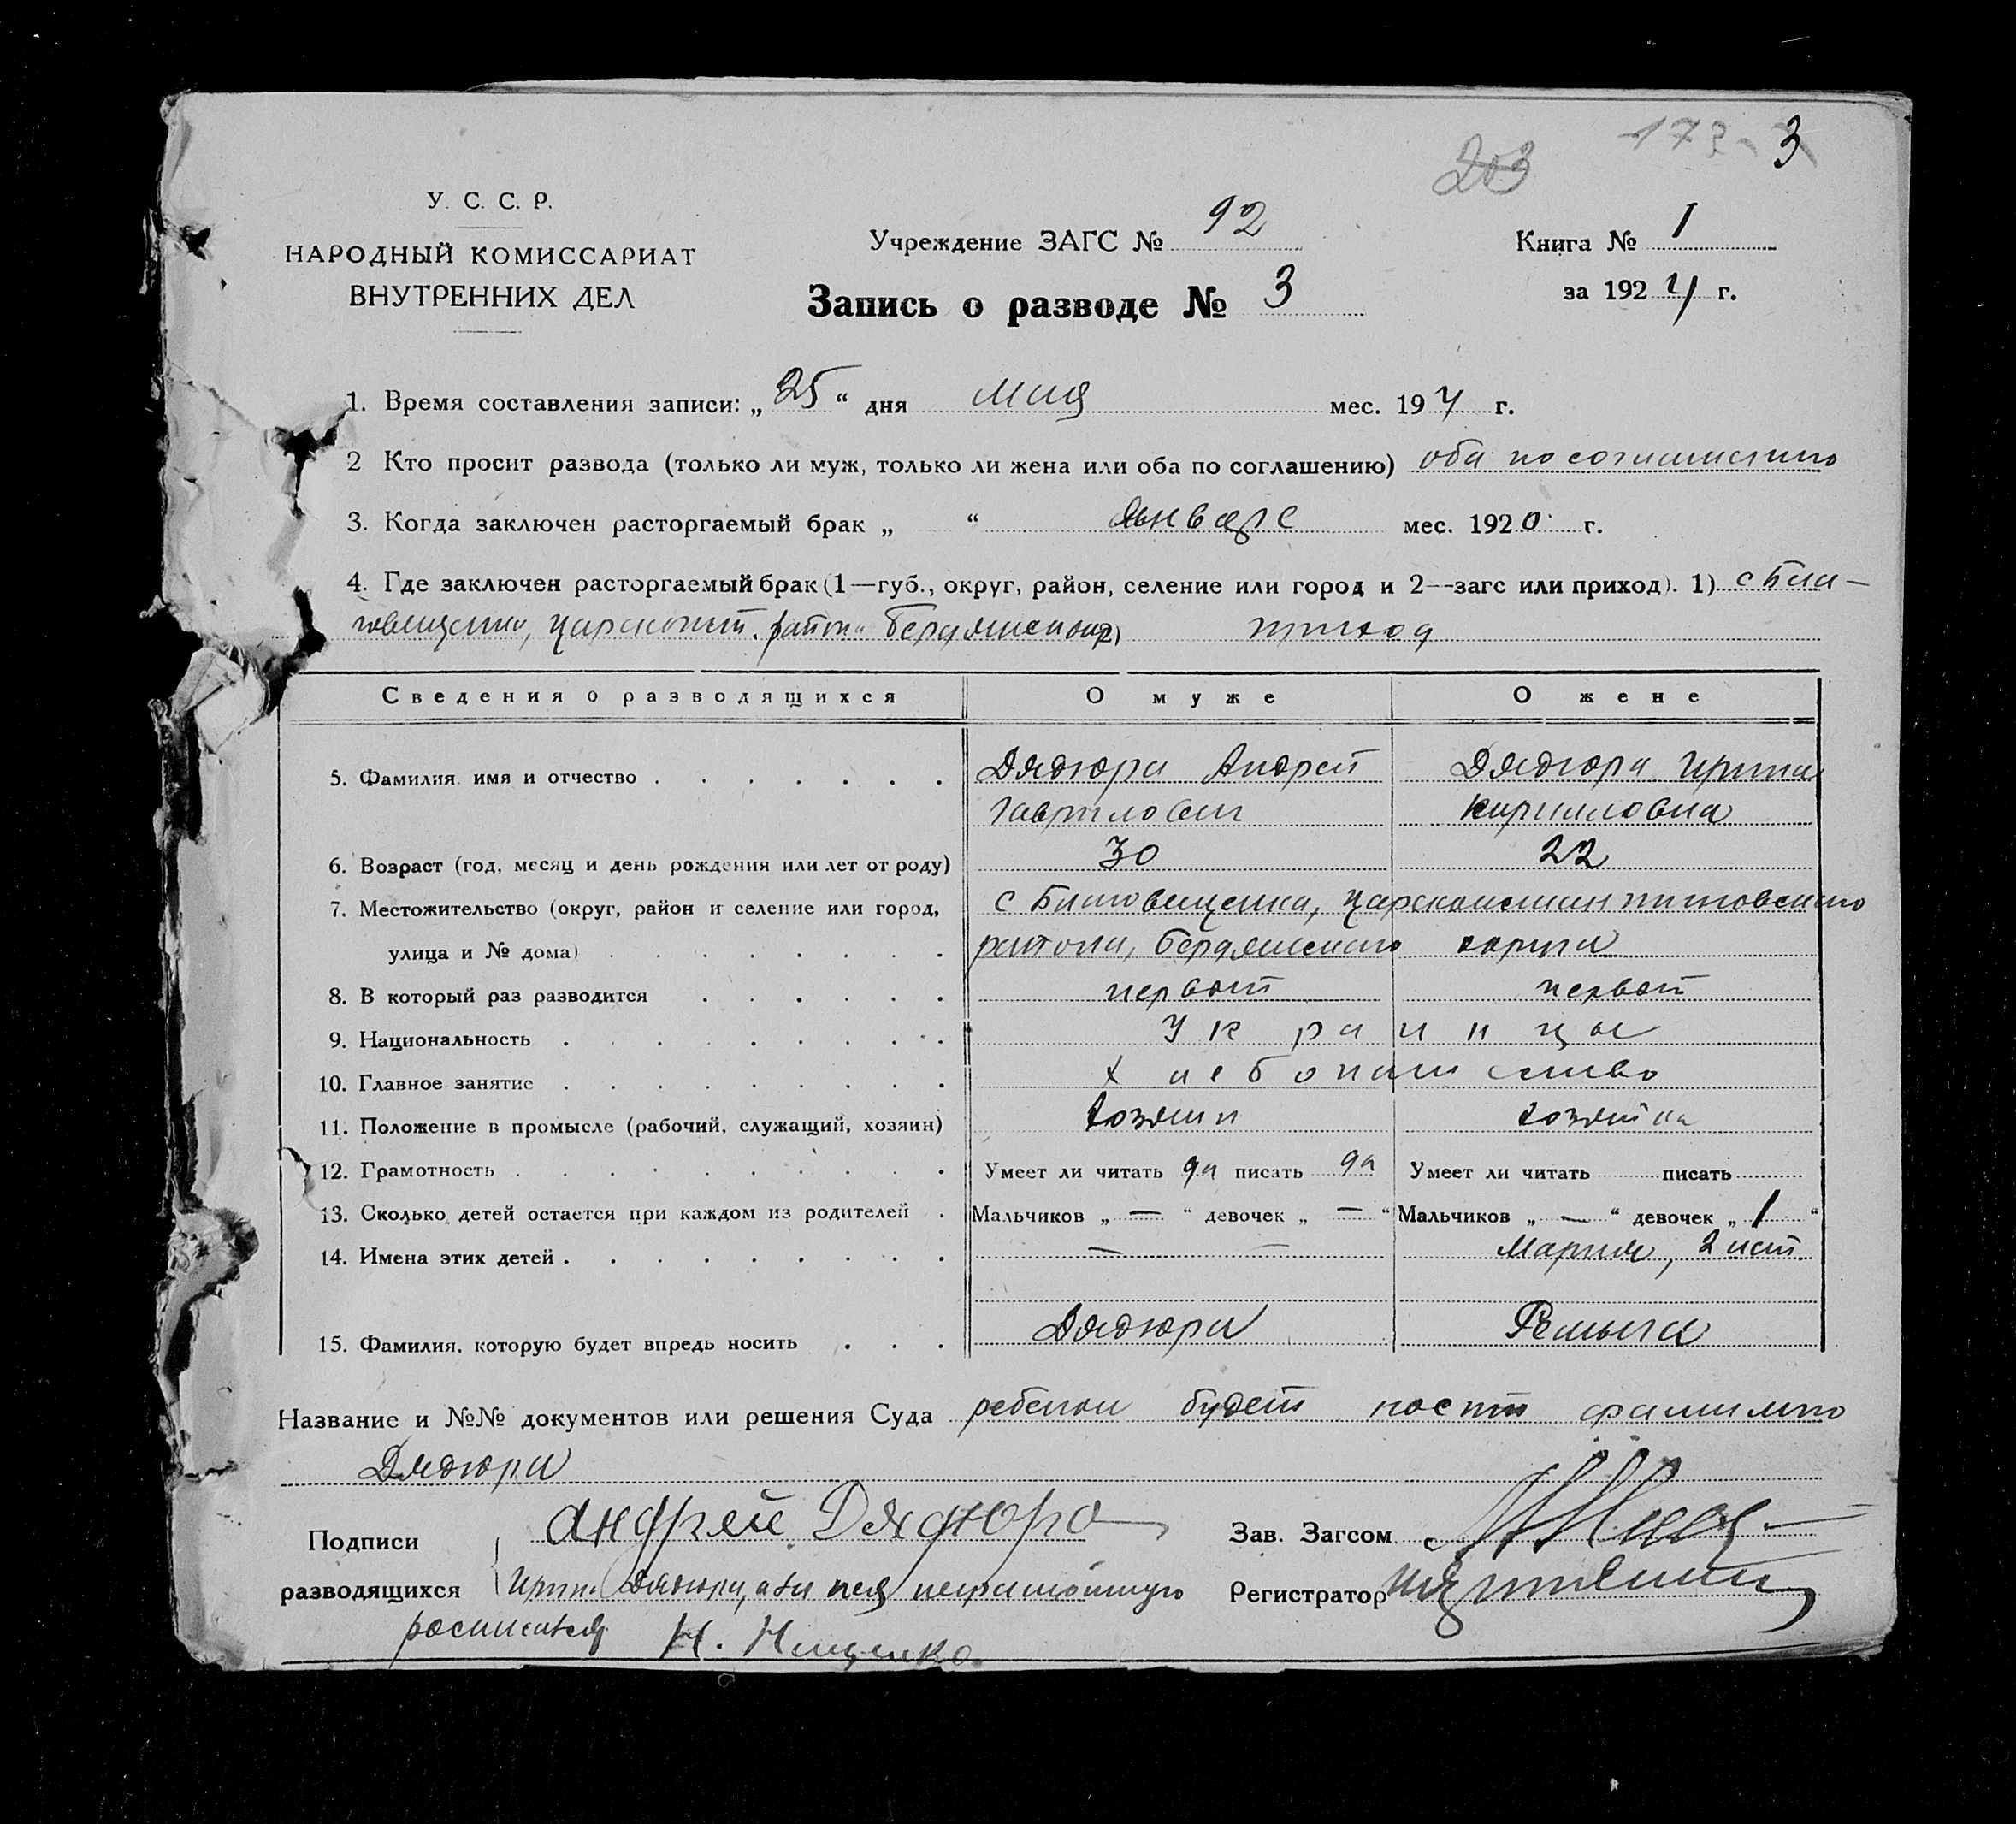 3
У. С. С. Р.
НАРОДНЫЙ КОМИССАРИАТ
ВНУТРЕННИХ ДЕЛ
Учреждение ЗАГС № 92
Запись о разводе № 3
Книга № 1
за 1924 г.
1. Время составления записи: „ 25 “ дня мая мес. 194 г.
2 Кто просит развода (только ли муж, только ли жена или оба по соглашению) оба по соглашению
3. Когда заключен расторгаемый брак „ “ январе мес. 1920 г.
4. Где заключен расторгаемый брак (1—губ., округ, район, селение или город и 2—загс или приход). 1) с Бла-
говещенка, царсконст. района Бердянск окр 2) приход
Сведения о разводящихся О муже О жене
5. Фамилия имя и отчество Дядюра Андрей Дядюра Ирина
Гаврилович Кирилловна
6. Возраст (год, месяц и день рождения или лет от роду) 30 22
7. Местожительство (округ, район и селение или город, с Благовещенка, Царсконстантиновского
улица и № дома) района, Бердянского округа
8. В который раз разводится первый первый
9. Национальность Украинцы
10. Главное занятие хлебопашество
11. Положение в промысле (рабочий, служащий, хозяин) хозяин хозяйка
12. Грамотность Умеет ли читать да писать да Умеет ли читать писать
13. Сколько детей остается при каждом из родителей Мальчиков „ — “ девочек „ — “ Мальчиков „ — “ девочек „ 1 “
14. Имена этих детей — — Мария, 2 лет
15. Фамилия, которую будет впредь носить Дядюра
Название и №№ документов или решения Суда ребенок будет носить фамилию
Дядюра
Подписи андрей Дядюра Зав. Загсом
разводящихся Ирина Дядюра, а за нея неграмотную Регистратор
росписался Н. Нищенко